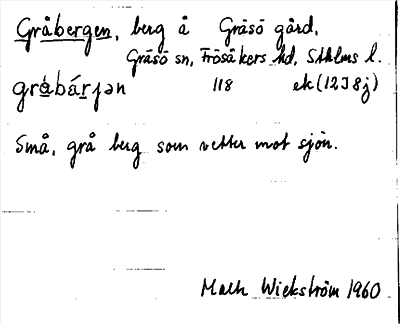 Gråbergen, berg å Gräsö gård,
Gräsö sn, Frösåkers hd, Sthlms l.
gràbárjən 118 ek (12J8j)
Små, grå berg som vetter mot sjön.
Wickström 1960